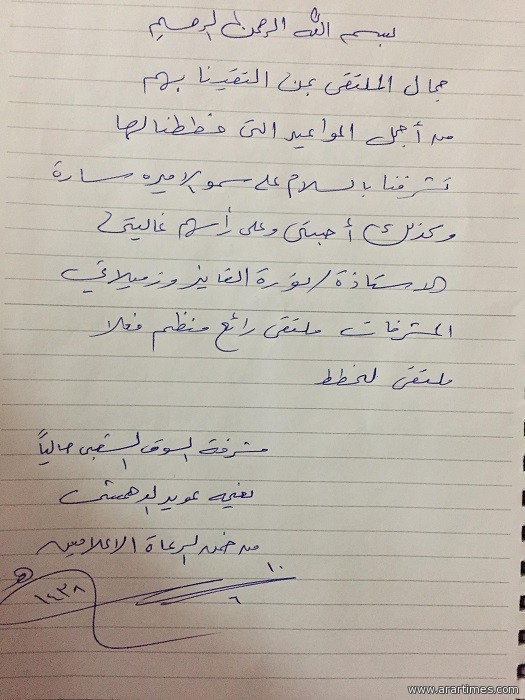 بسم الله الرحمن الرحيم
جمال الملتقى بمن التقينا بهم
من أجمل المواعيد التى خططنا لها
تشرفنا بالسلام على سمو الاميره سارة
وكذلك أحبتي وعلى رأسهم غاليتي
الاستاذة / نورة الفايز وزميلاتي
المشرفات ملتقى رائع منظم فعلا
ملتقى للخطط
مشرفة السوق الشعبى حالياً
نعيمه عويد الدهمشي
من ضمن الرعاة الاعلاميين
١٠
٦
١٤٣٨
www.arartimes.com